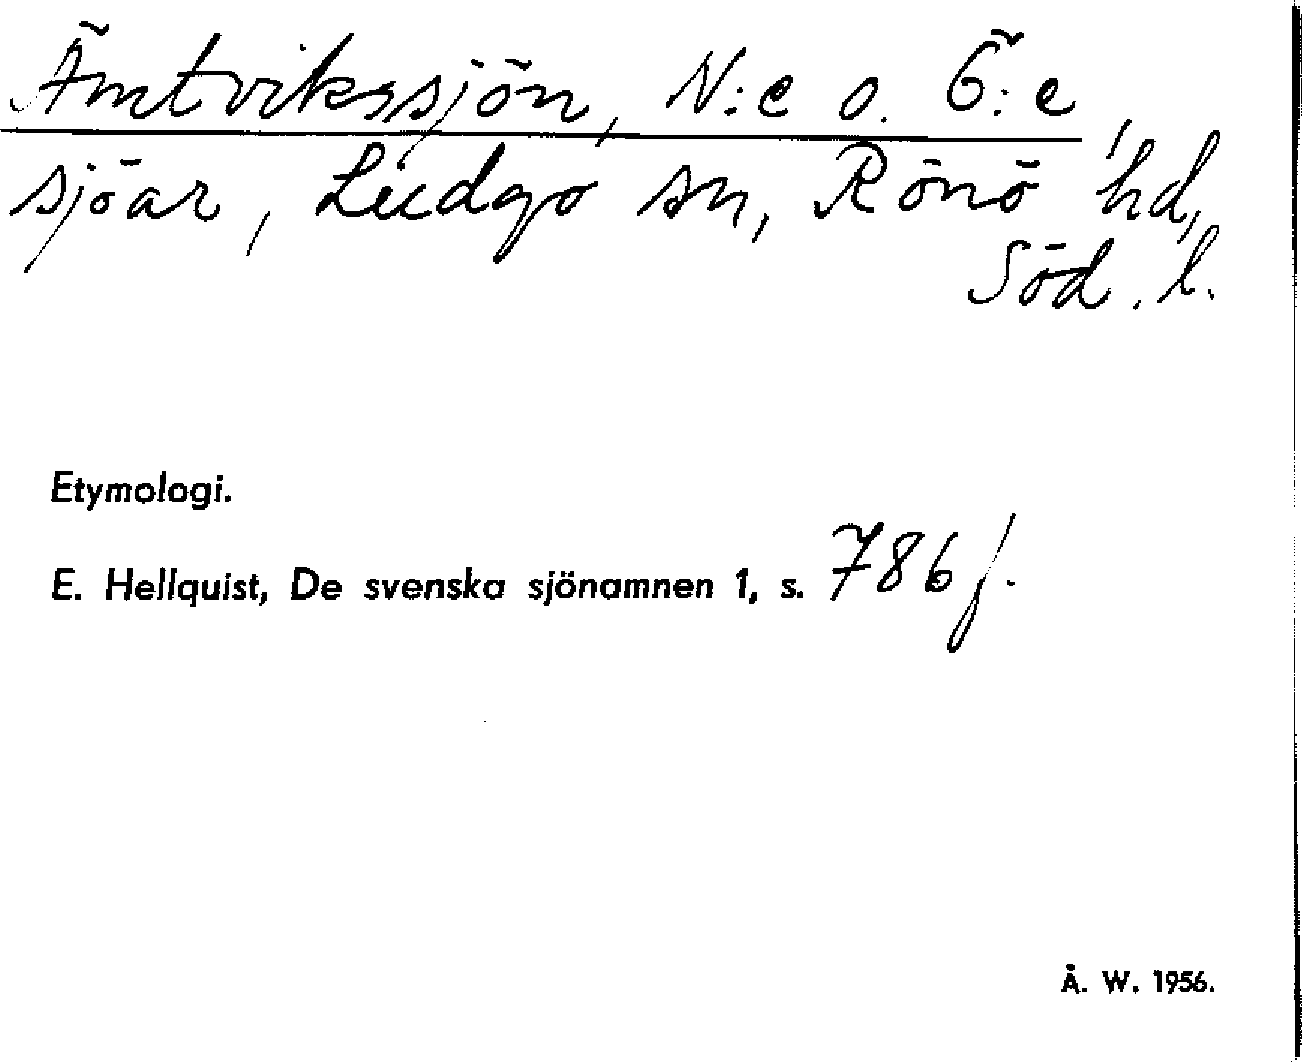 Ämtvikssjön, N:e o. Ö:e
sjöar, Ludgo sn, Rönö hd,
Söd. l.
Etymologi.
E. Hellquist, De svenska sjönamnen 1, s. 786 f.
Å. W. 1956.